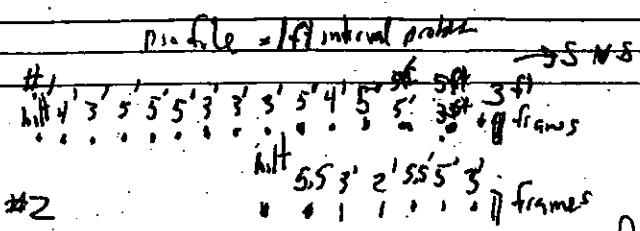 profile = 1 ft interval
→ S N S
#1
hilt 4' 3' 5' 5' 5' 3' 3' 3' 5' 4' 5' 5' 3 ft
5ft
frams
hilt
5.5 3' 2' 5.5' 5' 3'
#2 frames